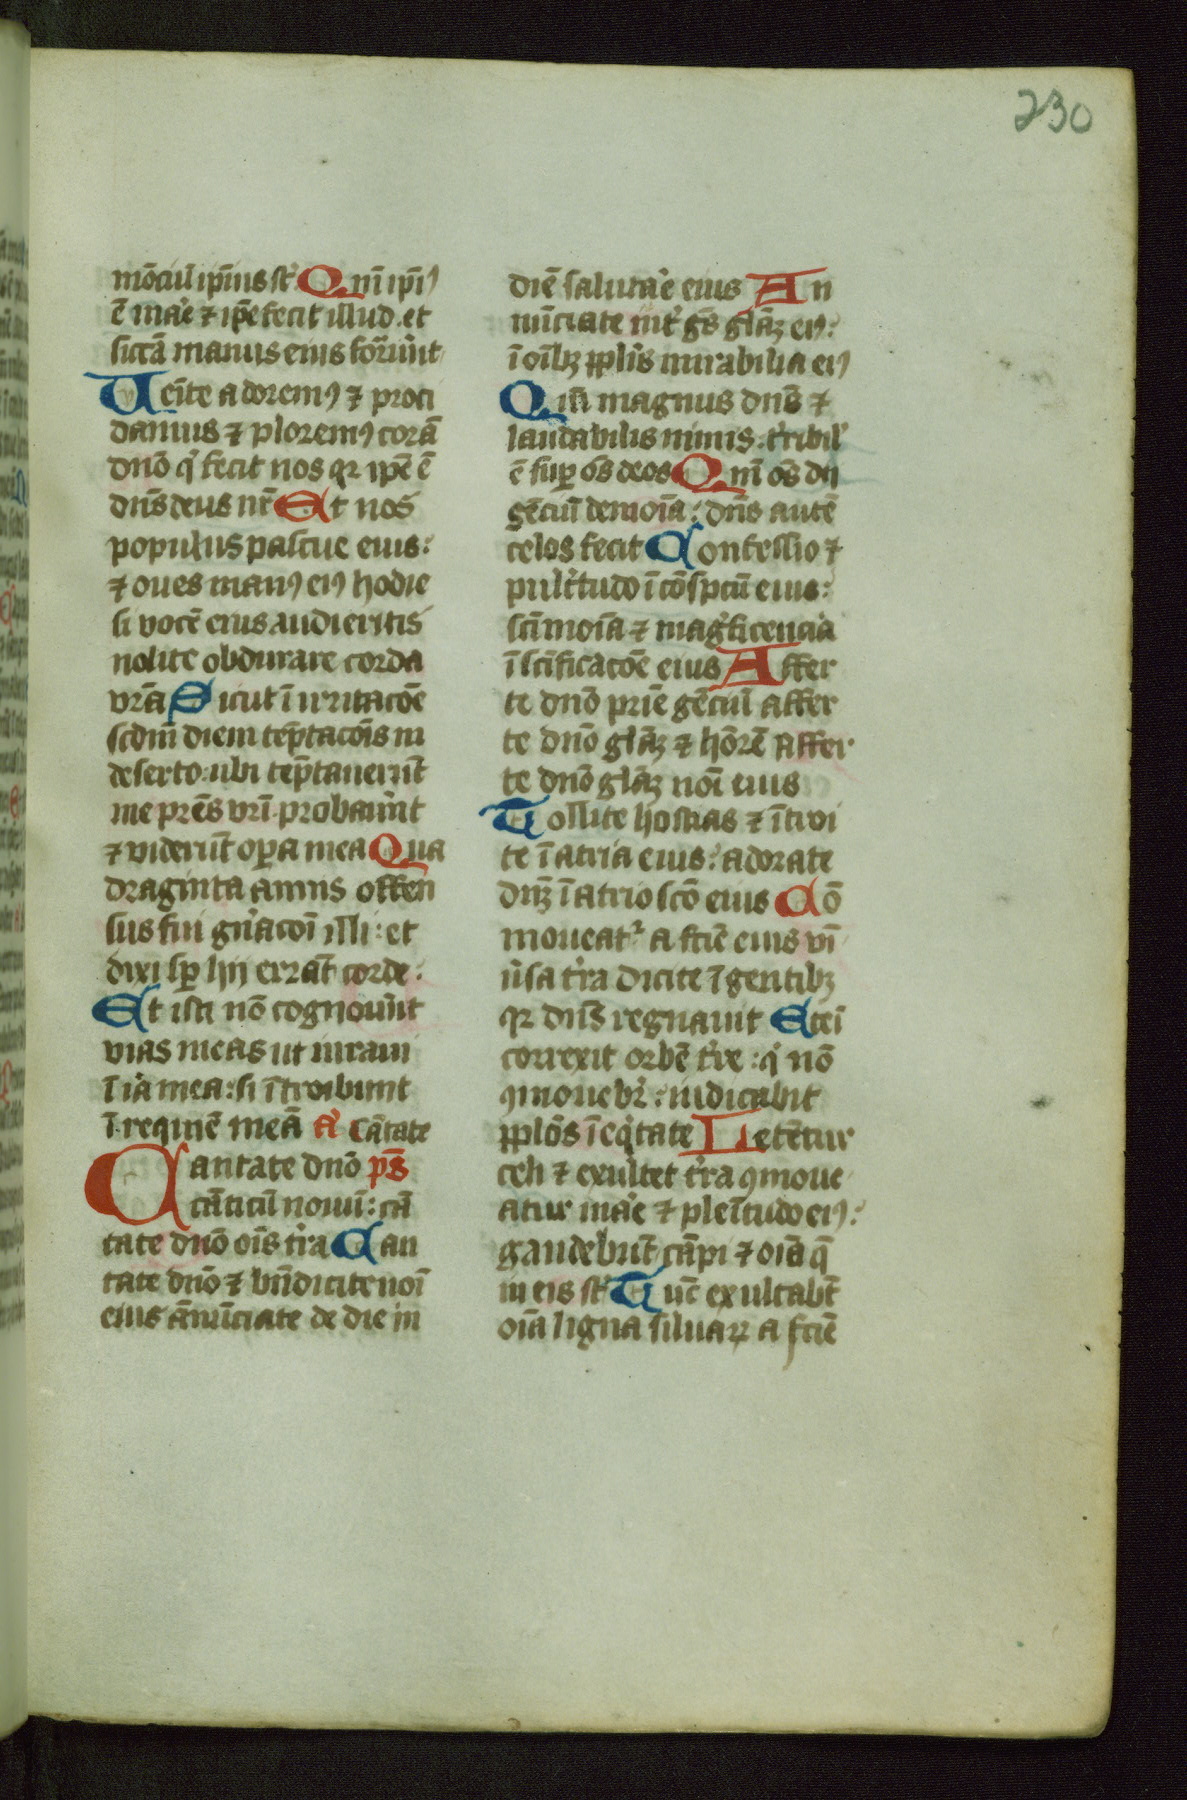 230
mōciū ip̄ius st̛ Qm̄ ipi̛ꝰ
ē mar̛e ⁊ ip̄e fecit illud. et
siccā manus eius for̄ūt
Ueīte adoremꝰ ⁊ proci
damus ⁊ ploremꝰ corā
dnō q̛ fecit nos qꝛ ip̄e ē
dn̄s deus nr̄ Et nos
populus pascue eius:
⁊ oues manꝰ eiꝰ hodie
si vocē eius audieritis
nolite obdurare corda
vr̄a Sicut ī irritacōe
scdm̄ diem tēptacōis in
deserto: ubi tēptauerūt
me pr̄es vr̄i probauūt
⁊ viderūt oꝑa mea Qua
draginta annis offen
sus fui gn̄acōi illi: et
dixi sꝑ hij errāt corde:
Et isti nō cognouūt
vias meas ut iuraui
ī ir̄a mea: si ītroibunt
ī requiē meā A̛ Cātate
Cantate dnō ps̄
cāticū nouū: cā
tate dnō oīs tr̛a Can
tate dnō ⁊ bn̄dicite noī
eius ānūciate de die in
diē salutar̛e eius An
nūciate int̛ gēs glāꝫ eiꝰ:
ī oībꝫ pplīs mirabilia eiꝰ
Qm̄ magnus dnś ⁊
laudabilis nimis: tr̛ibil̛
ē suꝑ oēs deos Qm̄ oēs dij
gēciū demoīa: dn̄s autē
celos fecit Confessio ⁊
pulc̛tudo ī cōspcū eius:
scīmoīa ⁊ mag̛ficencia
ī scīficacōe eius Affer
te dnō pr̄ie gēciū affer
te dnō glāꝫ ⁊ hōrē affer
te dnō glāꝫ noī eius
Tollite hostias ⁊ ītroi
te ī atria eius: adorate
dn̄ꝫ ī atrio scō eius Cō
moueat᷑ a fcīe eius vī
ūsa tr̛a dicite ī gentibꝫ
qꝛ dn̄s regnauit Eteī
correxit orbē tr̛e: q̛ nō
ꝯmouebr̛: iudicabit
pplōs ī eq̛tate Letētur
celi ⁊ exultet tr̛a ꝯmoue
atur mar̛e ⁊ pleītudo eiꝰ:
gaudebūt cāpi ⁊ oīa q̄
in eis st̛ Tūc exultabūt
oīa ligna siluaꝝ a fcīe